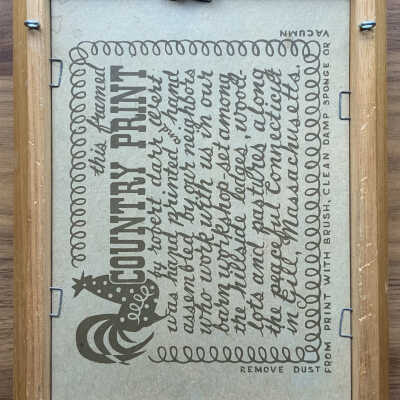 this framed
COUNTRY PRINT
by robert darr wert
was hand Printed and hand
assembled by our neighbors
who work with us in our
barn workshop set among
the hillside ledges, wood-
lots and pastures along
the peaceful Connecticut
in Gill, Massachusetts.
REMOVE DUST
FROM PRINT WITH BRUSH, CLEAN DAMP SPONGE OR
VACUMN